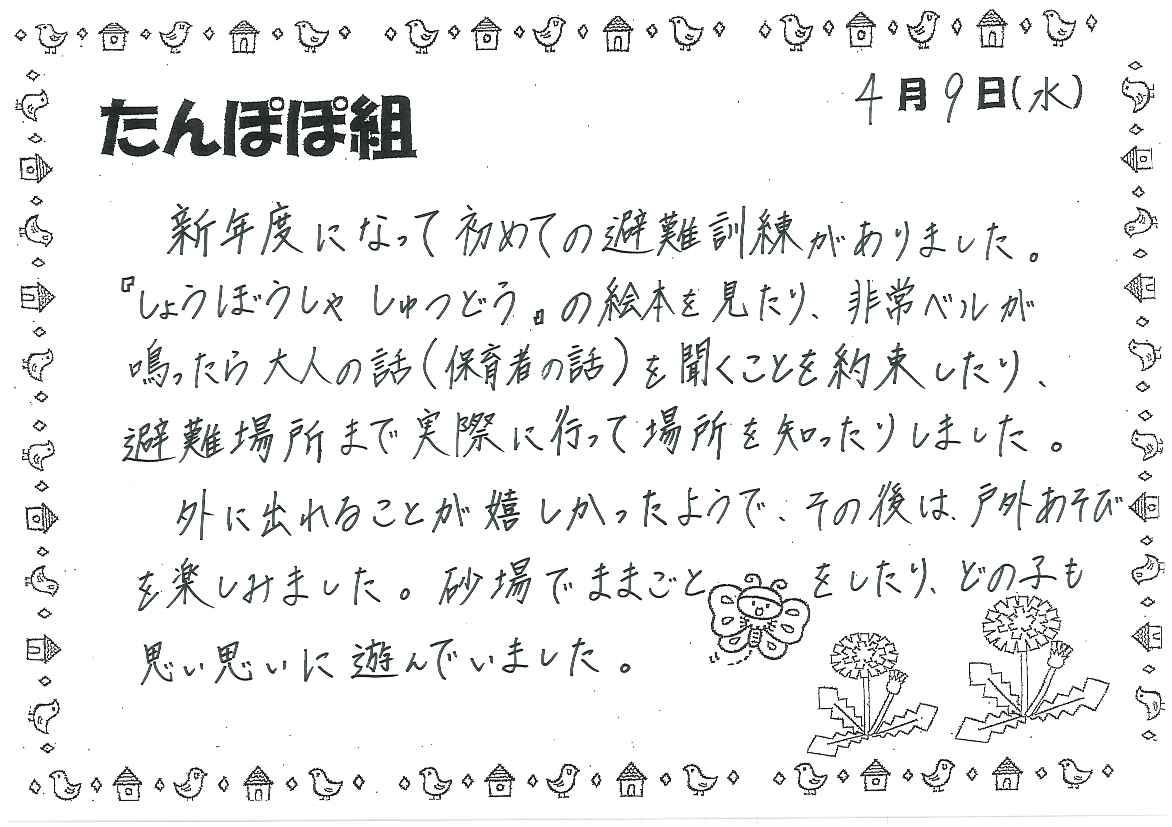 4月9日(水)
たんぽぽ組
新年度になって初めての避難訓練がありました。
『しょうぼうしゃ しゅつどう』の絵本を見たり、非常ベルが
鳴ったら大人の話(保育者の話)を聞くことを約束したり、
避難場所まで実際に行って場所を知ったりしました。
外に出れることが嬉しかったようで、その後は、戸外あそび
を楽しみました。砂場でままごとをしたり、どの子も
思い思いに遊んでいました。